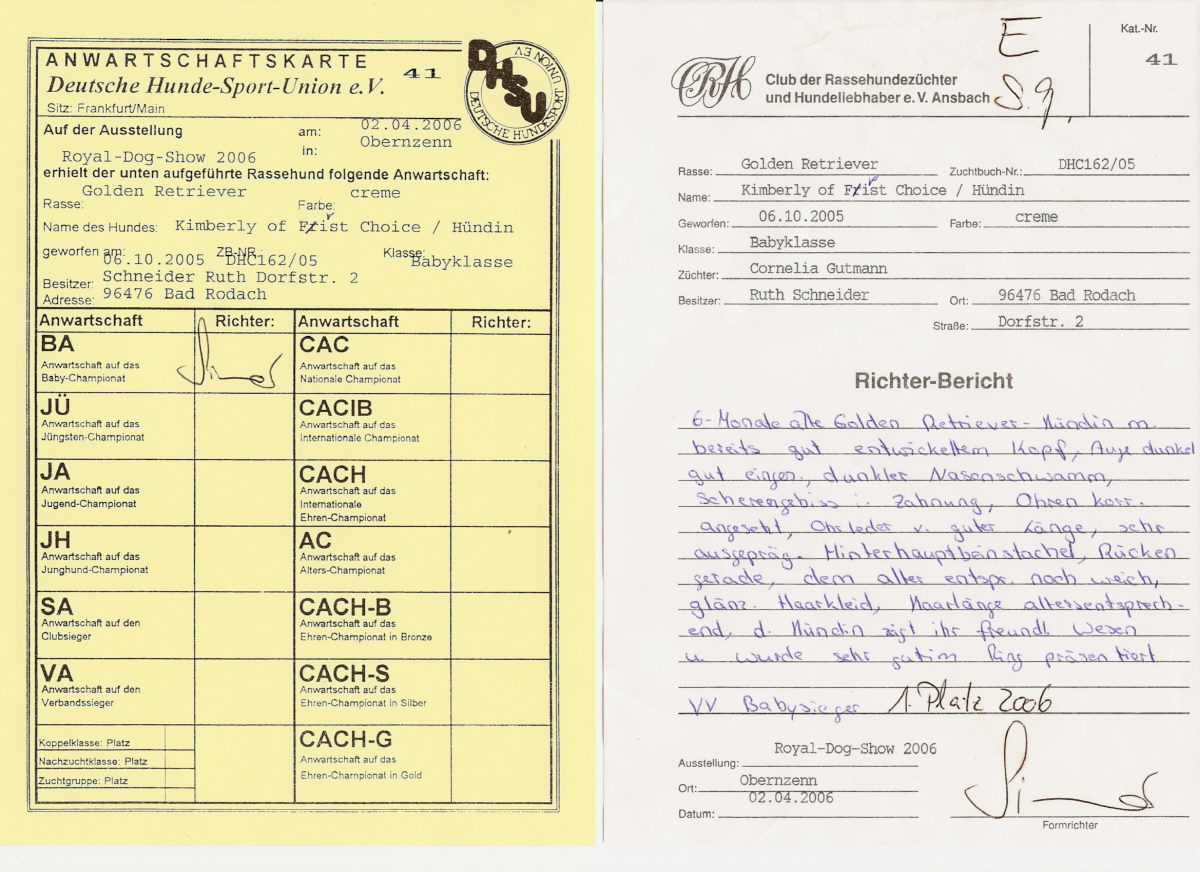 ANWARTSCHAFTSKARTE
Deutsche Hunde-Sport-Union e.V.
41
Sitz: Frankfurt/Main
DHSU
DEUTSCHE HUNDESPORT UNION EV
Auf der Ausstellung am: 02.04.2006
Royal-Dog-Show 2006 in: Obernzenn
erhielt der unten aufgeführte Rassehund folgende Anwartschaft:
Rasse: Golden Retriever Farbe: creme
Name des Hundes: Kimberly of Frist Choice / Hündin
geworfen am: 06.10.2005 ZB-NR.: DHC162/05 Klasse: Babyklasse
Besitzer: Schneider Ruth Dorfstr. 2
Adresse: 96476 Bad Rodach
Anwartschaft Richter: Anwartschaft Richter:
BA
Anwartschaft auf das
Baby-Championat
CAC
Anwartschaft auf das
Nationale Championat
JÜ
Anwartschaft auf das
Jüngsten-Championat
CACIB
Anwartschaft auf das
Internationale Championat
JA
Anwartschaft auf das
Jugend-Championat
CACH
Anwartschaft auf das
Internationale
Ehren-Championat
JH
Anwartschaft auf das
Junghund-Championat
AC
Anwartschaft auf das
Alters-Championat
SA
Anwartschaft auf den
Clubsieger
CACH-B
Anwartschaft auf das
Ehren-Championat in Bronze
VA
Anwartschaft auf den
Verbandssieger
CACH-S
Anwartschaft auf das
Ehren-Championat in Silber
Koppelklasse: Platz
Nachzuchtklasse: Platz
Zuchtgruppe: Platz
CACH-G
Anwartschaft auf das
Ehren-Championat in Gold
CRH
Club der Rassehundezüchter
und Hundeliebhaber e.V. Ansbach
E
S.g.
Kat.-Nr.
41
Rasse: Golden Retriever Zuchtbuch-Nr.: DHC162/05
Name: Kimberly of Frist Choice / Hündin
Geworfen: 06.10.2005 Farbe: creme
Klasse: Babyklasse
Züchter: Cornelia Gutmann
Besitzer: Ruth Schneider Ort: 96476 Bad Rodach
Straße: Dorfstr. 2
Richter-Bericht
6-Monate alte Golden Retriever-Hündin m.
bereits gut entwickeltem Kopf, Auge dunkel
gut einges., dunkler Nasenschwamm,
Scherengebiss i. Zahnung, Ohren korr.
angesetzt, Ohrleder v. guter Länge, sehr
ausgepräg. Hinterhauptbeinstachel, Rücken
gerade, dem alter entspr. noch weich,
glänz. Haarkleid, Haarlänge altersentsprech-
end, d. Hündin zeigt ihr freundl. Wesen
u. wurde sehr gut im Ring präsentiert
VV Babysieger 1. Platz 2006
Ausstellung: Royal-Dog-Show 2006
Ort: Obernzenn
Datum: 02.04.2006
Formrichter